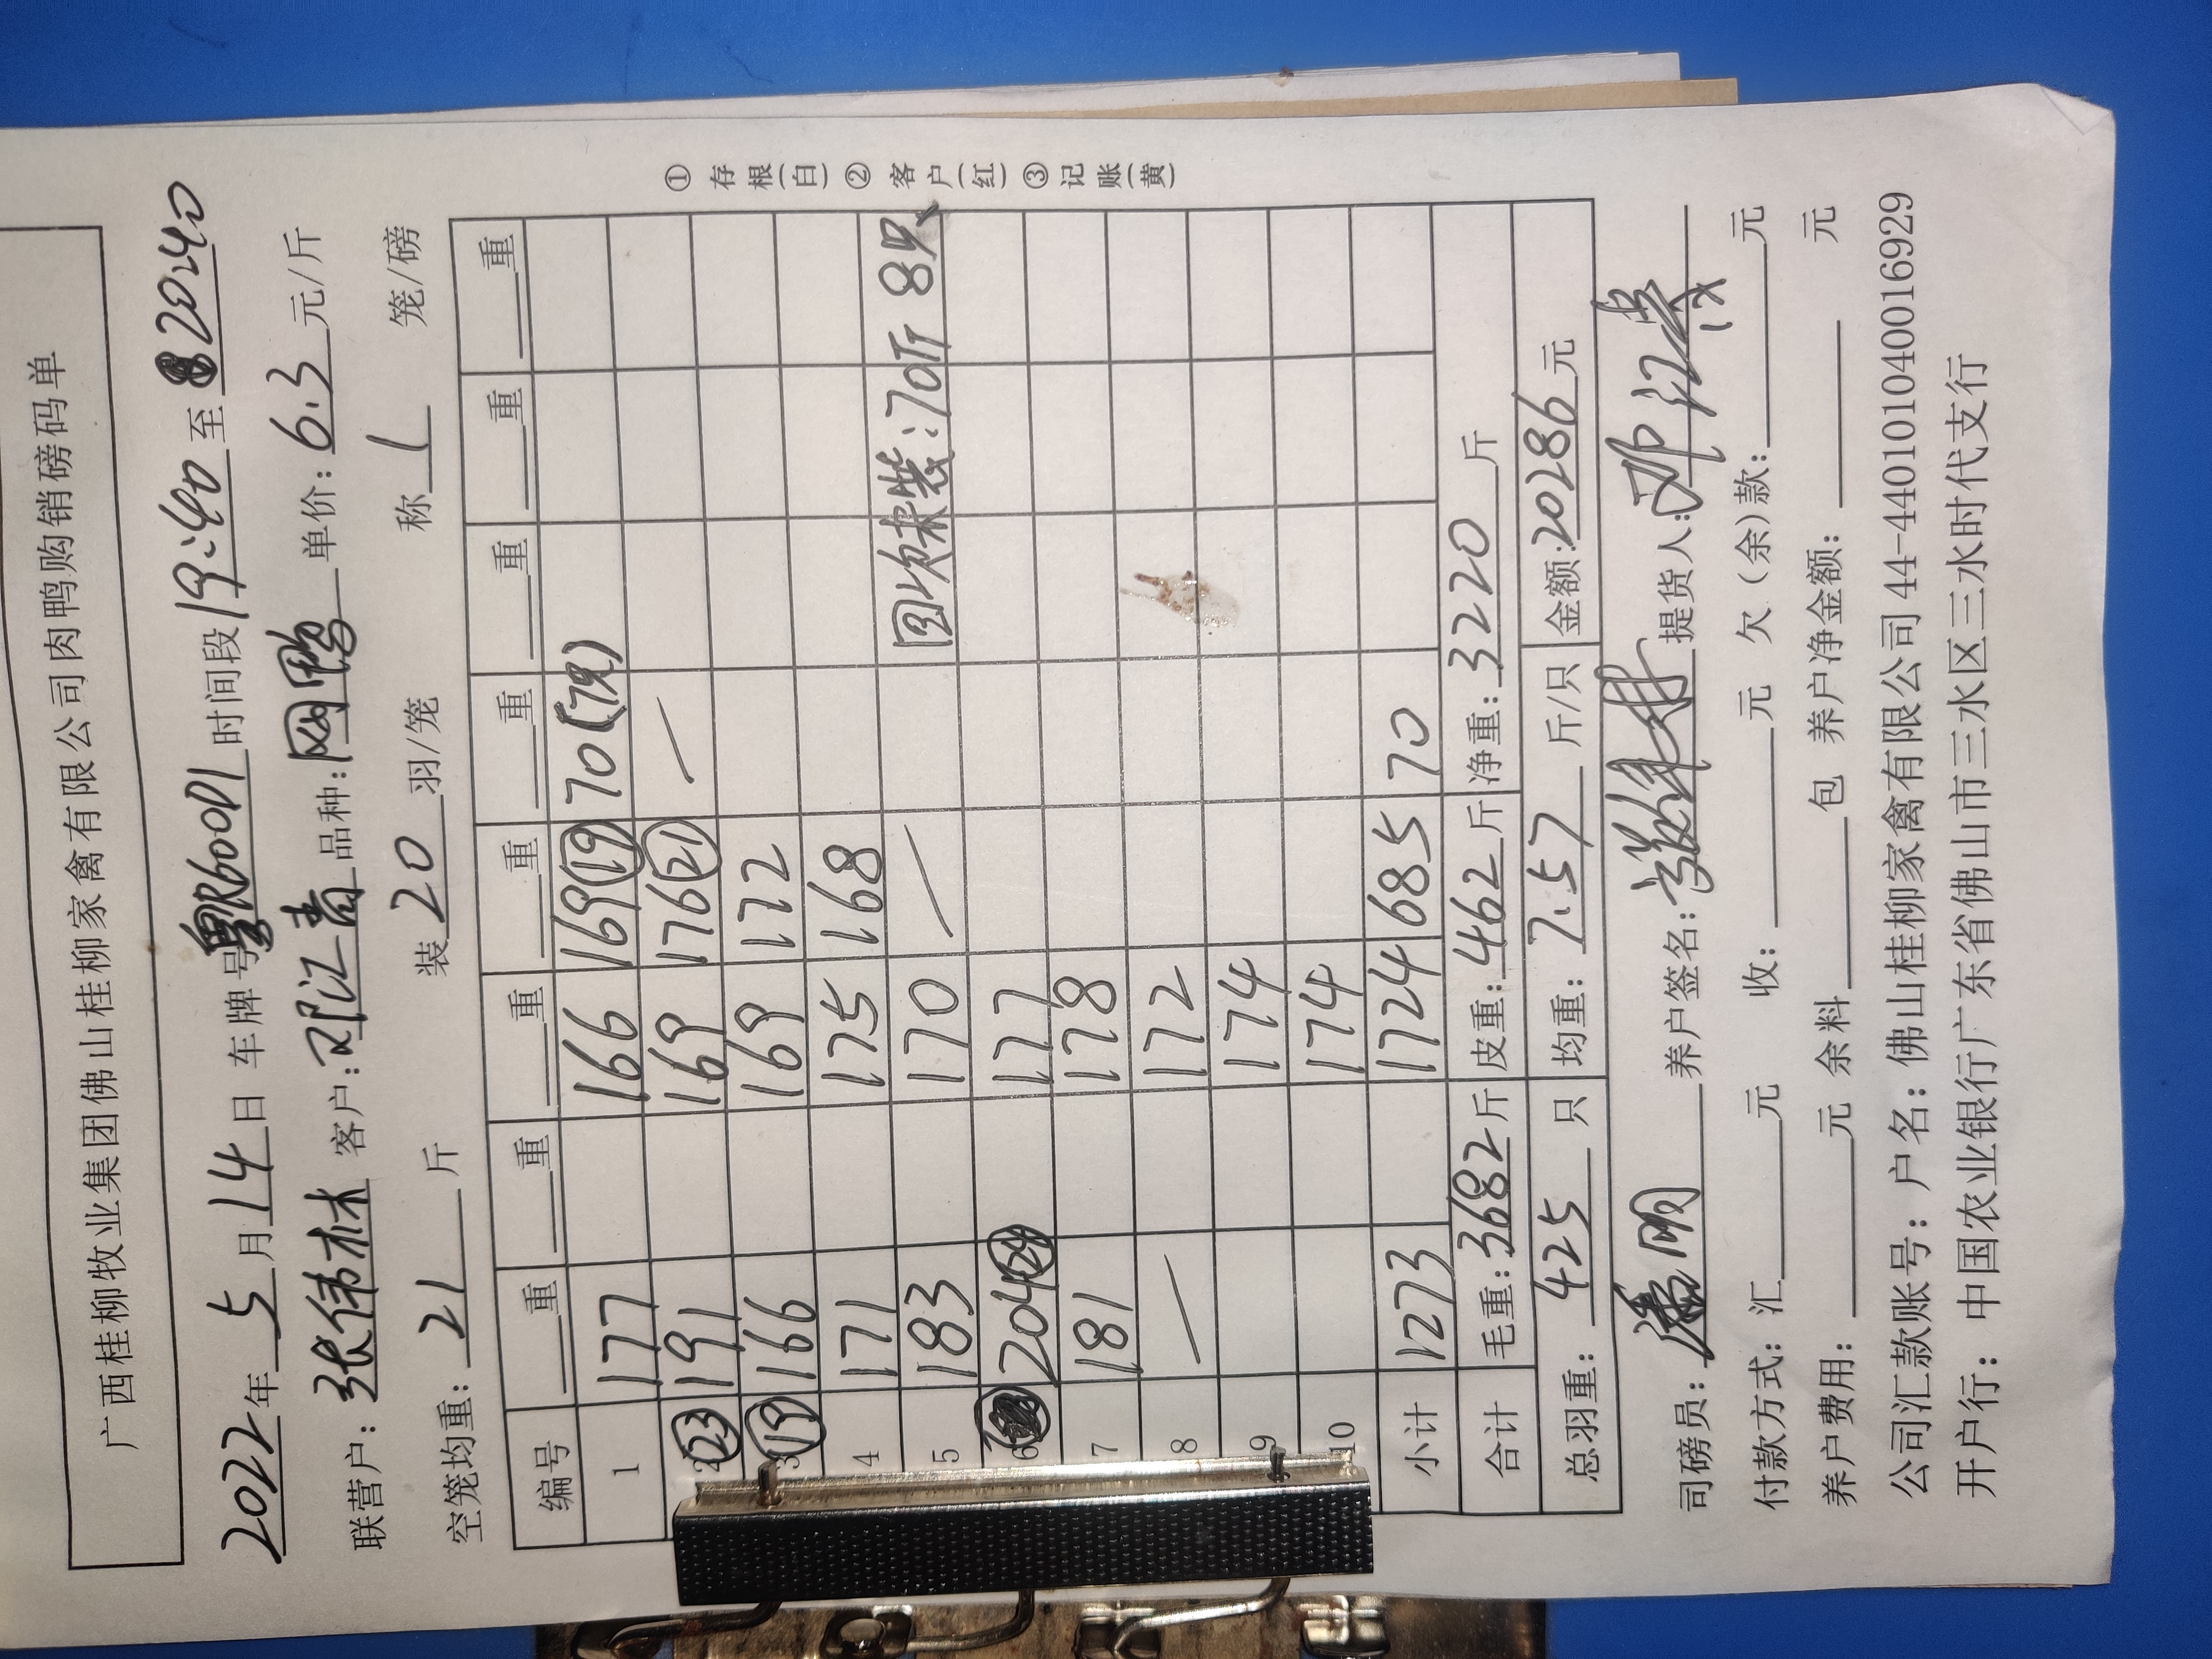 广西桂柳牧业集团佛山桂柳家禽有限公司肉鸭购销磅码单
2022年 5月 14日 车牌号 粤R600D1 时间段 19:40 至 20:40
联营户: 张伟林 客户: 邓江青 品种: 网鸭 单价: 6.3 元/斤
空笼均重: 21 斤 装 20 羽/笼 称 1 笼/磅
编号 重 重 重 重 重 重 重 重
1 177 166 169(19) 70(7只)
2 (23) 191 169 176(21) —
3 (19) 166 169 172
4 171 175 168
5 183 170 — 回收袜装:70斤 8只
6 204(24) 177
7 181 178
8 — 172
9 174
10 174
小计 1273 1724 685 70
合计 毛重: 3682 斤 皮重: 462 斤 净重: 3220 斤
总羽重: 425 只 均重: 7.57 斤/只 金额: 20286 元
司磅员: 潘明 养户签名: 张伟林 提货人: 邓江青
付款方式: 汇 元 收: 元 欠(余)款: 元
养户费用: 元 余料 包 养户净金额: 元
公司汇款账号: 户名: 佛山桂柳家禽有限公司 44-440101040016929
开户行: 中国农业银行广东省佛山市三水区三水时代支行
① 存根(白) ② 客户(红) ③ 记账(黄)